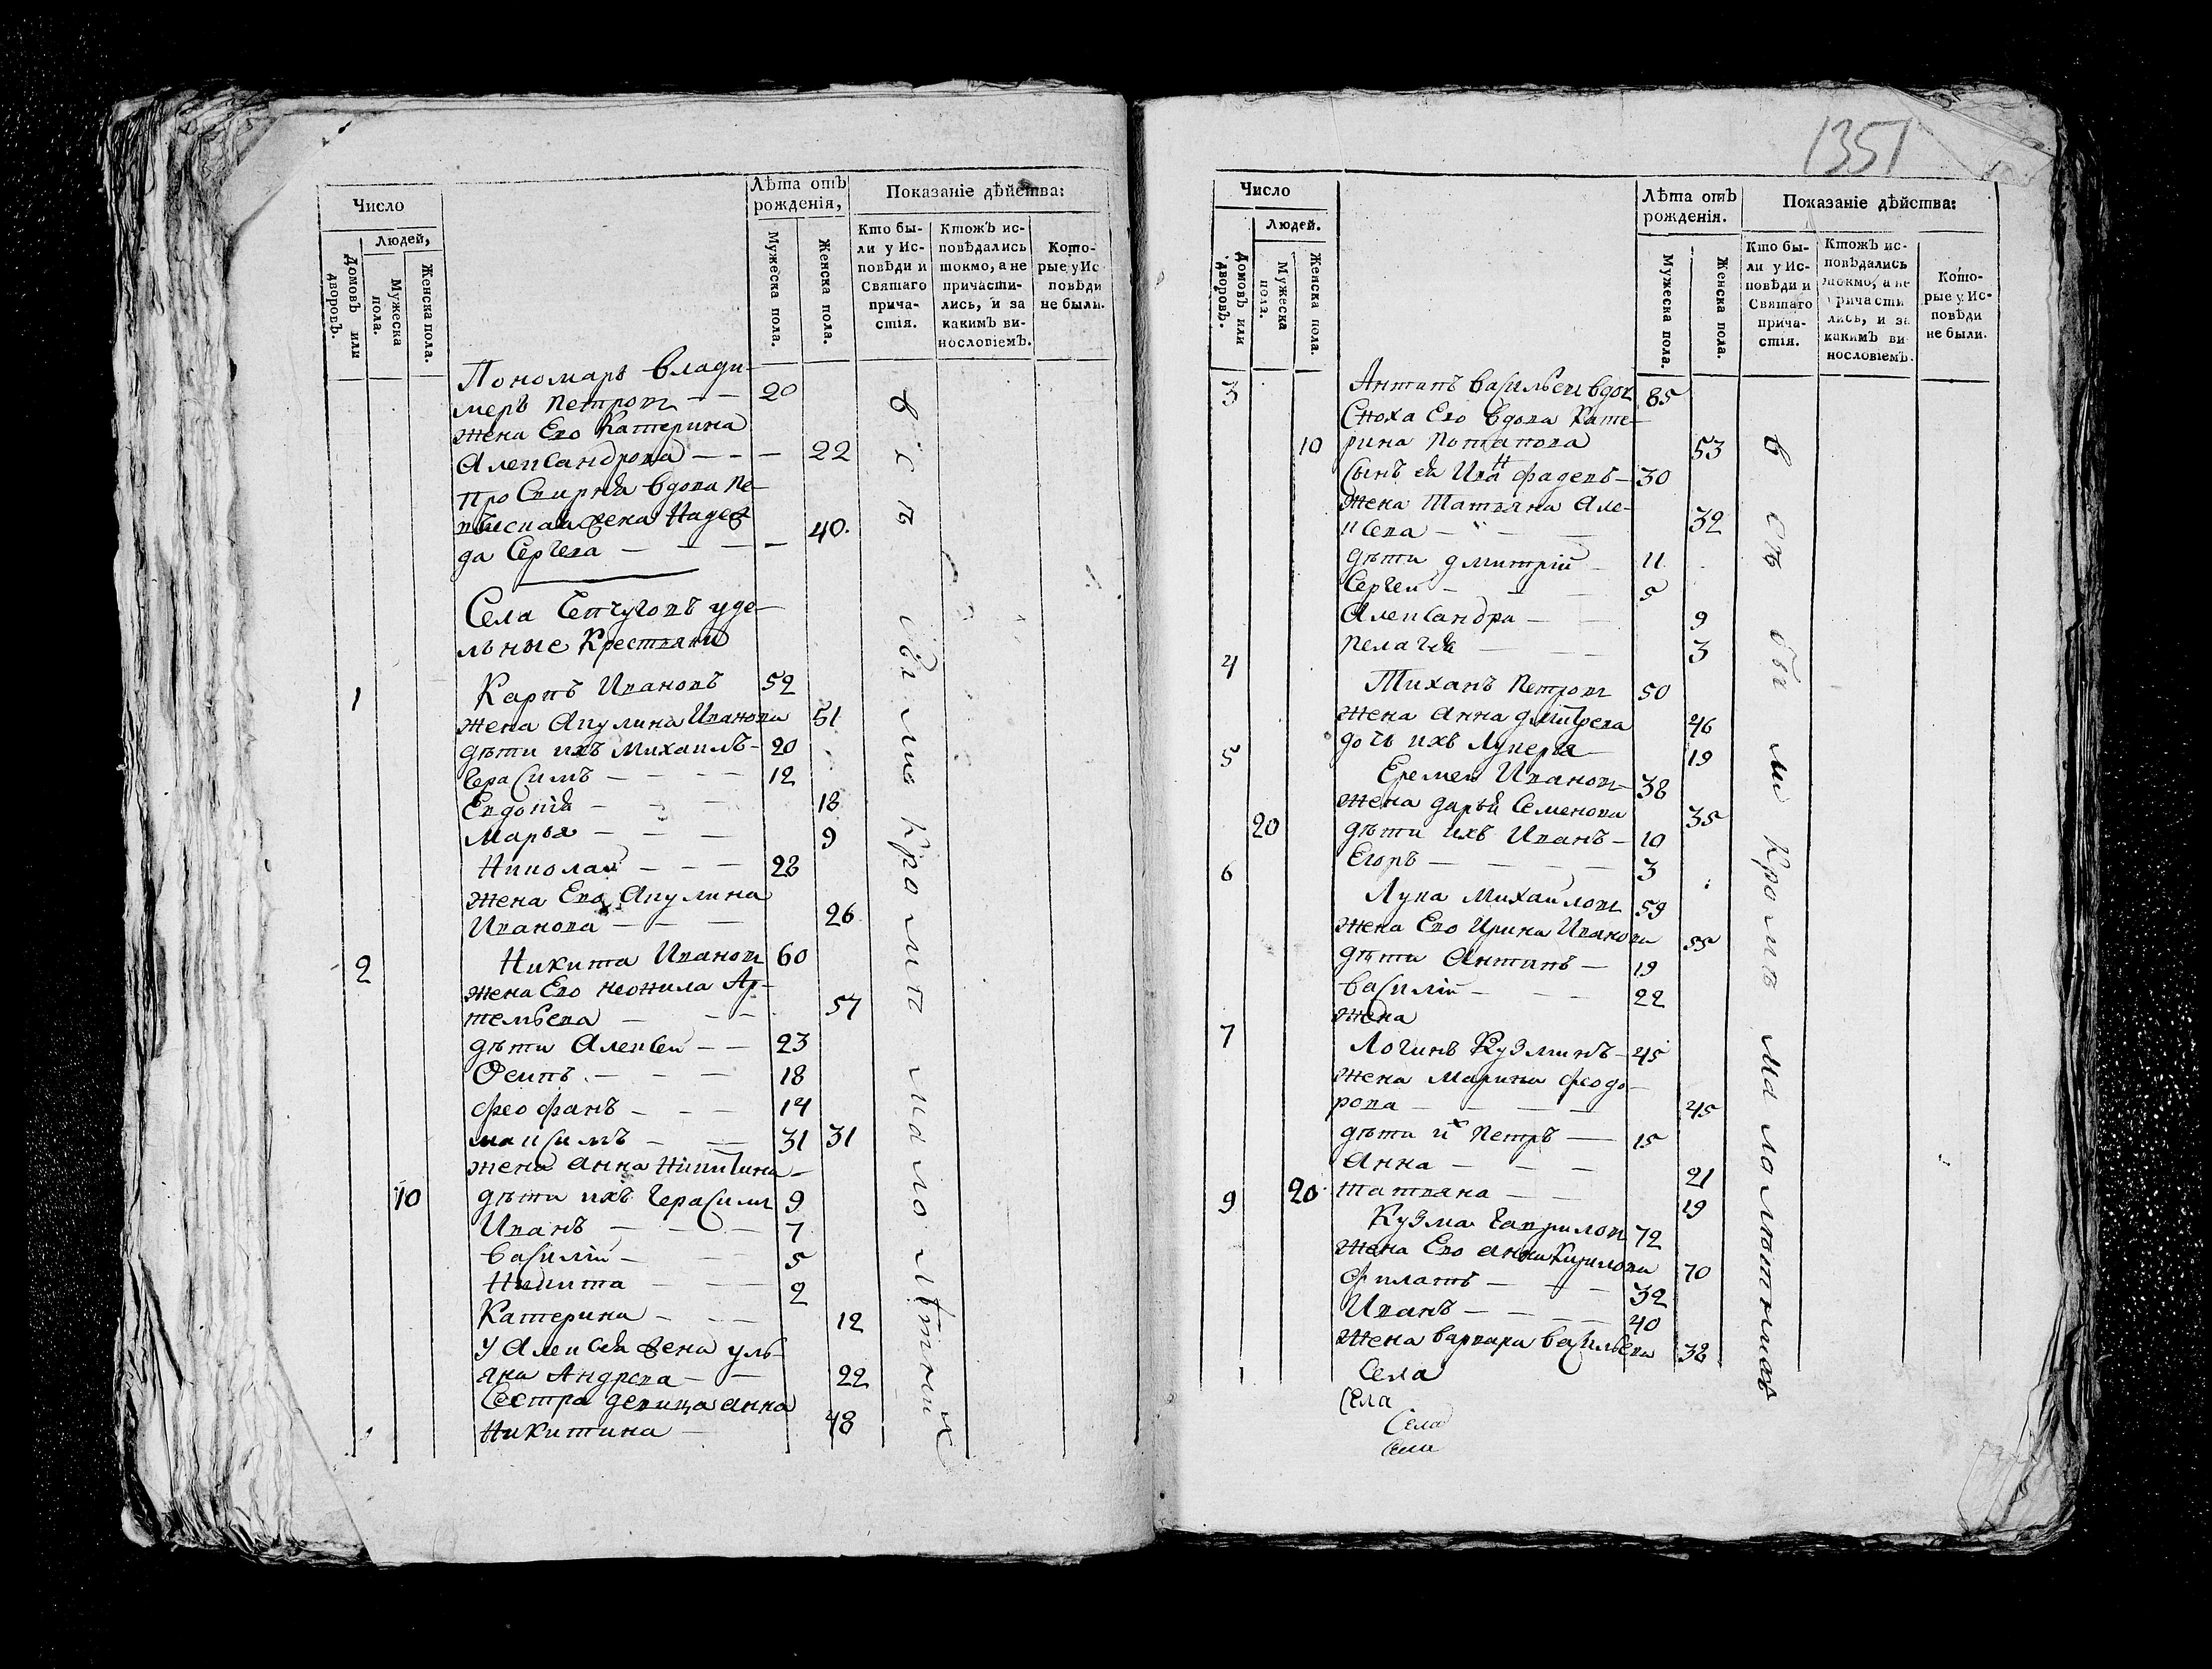 Число
Людей,
Домовъ или дворовъ.
Мужеска пола.
Женска пола.
Лѣта отъ рожденія,
Мужеска пола.
Женска пола.
Показаніе дѣйства:
Кто бы-
ли у Ис-
повѣди и
Святаго
прича-
стія.
Ктожъ ис-
повѣдались
токмо, а не
причасти-
лись, и за
какимъ ви-
нословіемъ.
Кото-
рые у Ис-
повѣди
не были.
Пономарь Влади-
меръ Петровъ — — 20
жена Его Катерина
Александрова — — — 22
Просвирня вдова Пе-
жена Надеж-
да Сергева — — — 40.
Села удѣ-
льные Крестьяни
1 Карпъ Ивановъ 52
жена Акулина Иванова 51
дѣти ихъ Михаилъ — 20
Герасимъ — — — 12
Евдокия — — — 18
Марья — — — 9
Николай — — — 28
жена Его Акулина
Иванова — — — 26
2 Никита Иванов 60
жена Его Неонила Ар-
темьева — — — 57
дѣти Алексеи — — 23
Осипъ — — — 18
Феофанъ — — — 14
Максимъ — — 31 31
жена Анна Никитина —
10 дѣти ихъ Герасим 9
Иванъ — — — 7
Василій — — 5
Никита — — — 2
Катерина — — — 12
у Алексея жена Уль-
яна Андрева — — 22
Сестра девица Анна
Никитина — 48
всѣ были кромѣ малолѣтних
1351
Число
Людей.
Домовъ или дворовъ.
Мужеска пола.
Женска пола.
Лѣта отъ рожденія.
Мужеска пола.
Женска пола.
Показаніе дѣйства:
Кто бы-
ли у Ис-
повѣди и
Святаго
прича-
стія.
Ктожъ ис-
повѣдались
токмо, а не
причасти-
лись, и за
какимъ ви-
нословіемъ.
Кото-
рые у Ис-
повѣди
не были.
3 Антипъ Васильеи вдов 85
Сноха Его вдова Кате-
10 рина Потапова 53
Сынъ ея Иван Фадевъ — 30
жена Татьяна Але-
ксева — — — 32
дѣти Дмитрій — 11
Сергеи — — — 5
Александра — — 9
Пелагия — — — 3
4 Тиханъ Петров 50
жена Анна Дмитрева 46
дочь ихъ Лукерья 19
5 Еремеи Иванов 38
жена Дарья Семенова 35
20 дѣти ихъ Иванъ — 10
Егоръ — — — 3
6 Лука Михаилов 59
жена Его Ирина Иванова 55
дѣти Антипъ — 19
Василій — — — 22
жена
7 Логинъ Кузминъ — 45
жена Марина Феодо-
рова — — — 45
дѣти их Петръ — 15
Анна — — — 21
20 Татьяна — — 19
9 Кузма Гаврилов 72
жена Его Анна Кирилова 70
Филатъ — — — 32
Иванъ — — — 40
жена Варвара Васильева 38
Села
Села
Села
Села
всѣ были кромѣ малолѣтнихъ